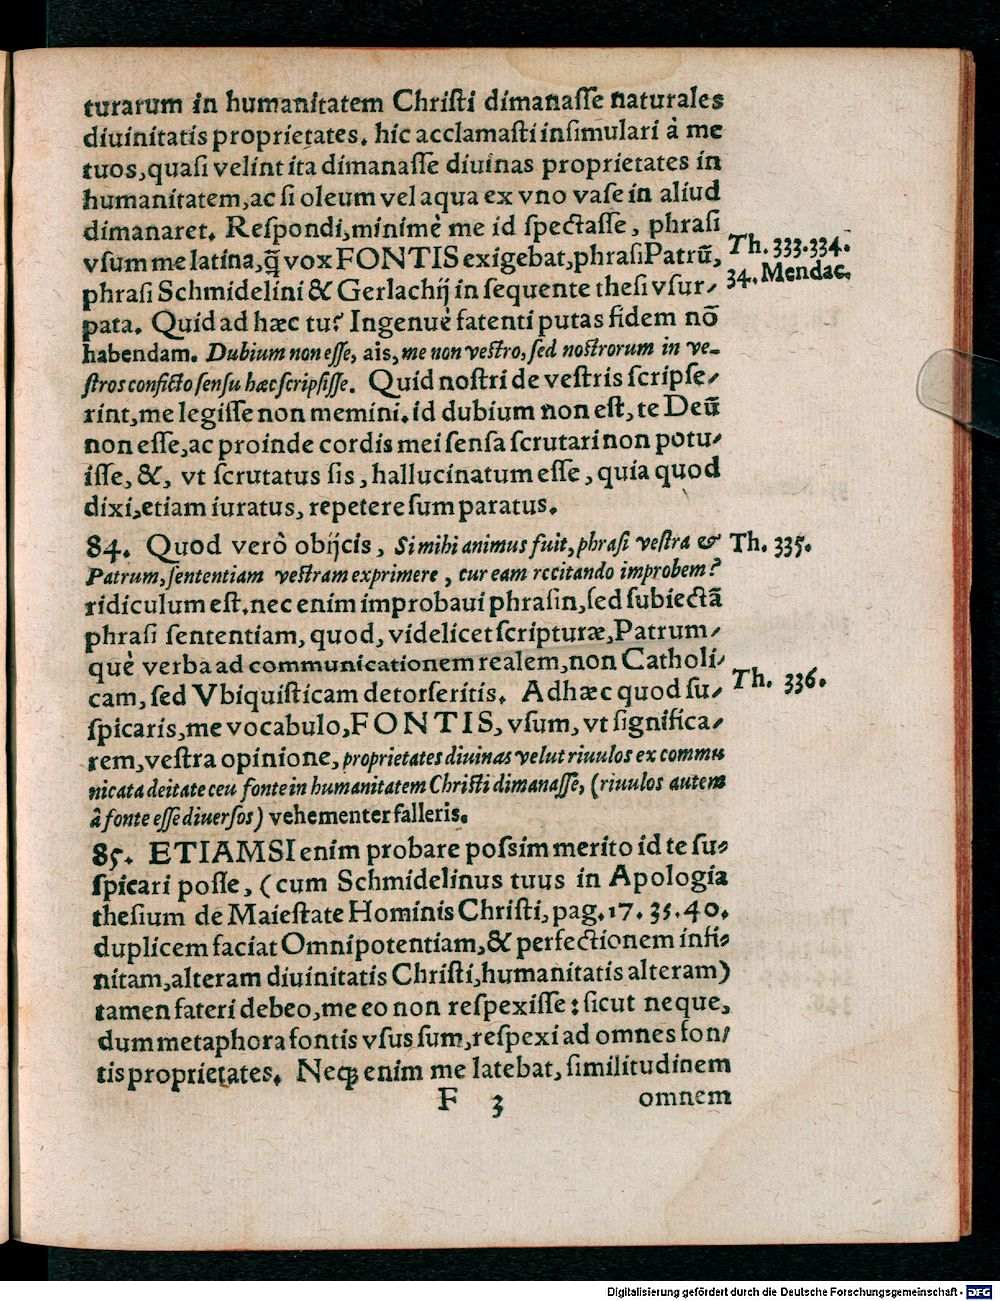 turarum in humanitatem Chriſti dimanaſſe naturales
diuinitatis proprietates. hic acclamaſti inſimulari à me
tuos, quaſi velint ita dimanaſſe diuinas proprietates in
humanitatem, ac ſi oleum vel aqua ex vno vaſe in aliud
dimanaret. Reſpondi, minimè me id ſpectaſſe, phraſi
vſum me latina, q̃ vox FONTIS exigebat, phraſi Patrũ,
Th. 333.334.
phraſi Schmidelini & Gerlachij in ſequente theſi vſur-
34. Mendac.
pata. Quid ad hæc tu? Ingenuè fatenti putas fidem nō
habendam. Dubium non eſſe, ais, me non veſtro, ſed noſtrorum in ve-
ſtros conficto ſenſu hæc ſcripſiſſe. Quid noſtri de veſtris ſcripſe-
rint, me legiſſe non memini. id dubium non eſt, te Deū
non eſſe, ac proinde cordis mei ſenſa ſcrutari non potu-
iſſe, &, vt ſcrutatus ſis, hallucinatum eſſe, quia quod
dixi, etiam iuratus, repetere ſum paratus.
84. Quod verò obijcis, Si mihi animus fuit, phraſi veſtra &
Th. 335.
Patrum, ſententiam veſtram exprimere, cur eam recitando improbem?
ridiculum eſt. nec enim improbaui phraſin, ſed ſubiectā
phraſi ſententiam, quod, videlicet ſcripturæ, Patrum-
què verba ad communicationem realem, non Catholi-
cam, ſed Vbiquiſticam detorſeritis. Ad hæc quod ſu-
Th. 336.
ſpicaris, me vocabulo, FONTIS, vſum, vt ſignifica-
rem, veſtra opinione, proprietates diuinas velut riuulos ex commu
nicata deitate ceu fonte in humanitatem Chriſti dimanaſſe, (riuulos autem
à fonte eſſe diuerſos) vehementer falleris.
85. ETIAMSI enim probare poſsim merito id te ſu-
ſpicari poſſe, (cum Schmidelinus tuus in Apologia
theſium de Maieſtate Hominis Chriſti, pag. 17. 35. 40.
duplicem faciat Omnipotentiam, & perfectionem infi-
nitam, alteram diuinitatis Chriſti, humanitatis alteram)
tamen fateri debeo, me eo non reſpexiſſe: ſicut neque,
dum metaphora fontis vſus ſum, reſpexi ad omnes fon-
tis proprietates. Neq; enim me latebat, ſimilitudinem
F 3
omnem
Digitalisierung gefördert durch die Deutsche Forschungsgemeinschaft - DFG